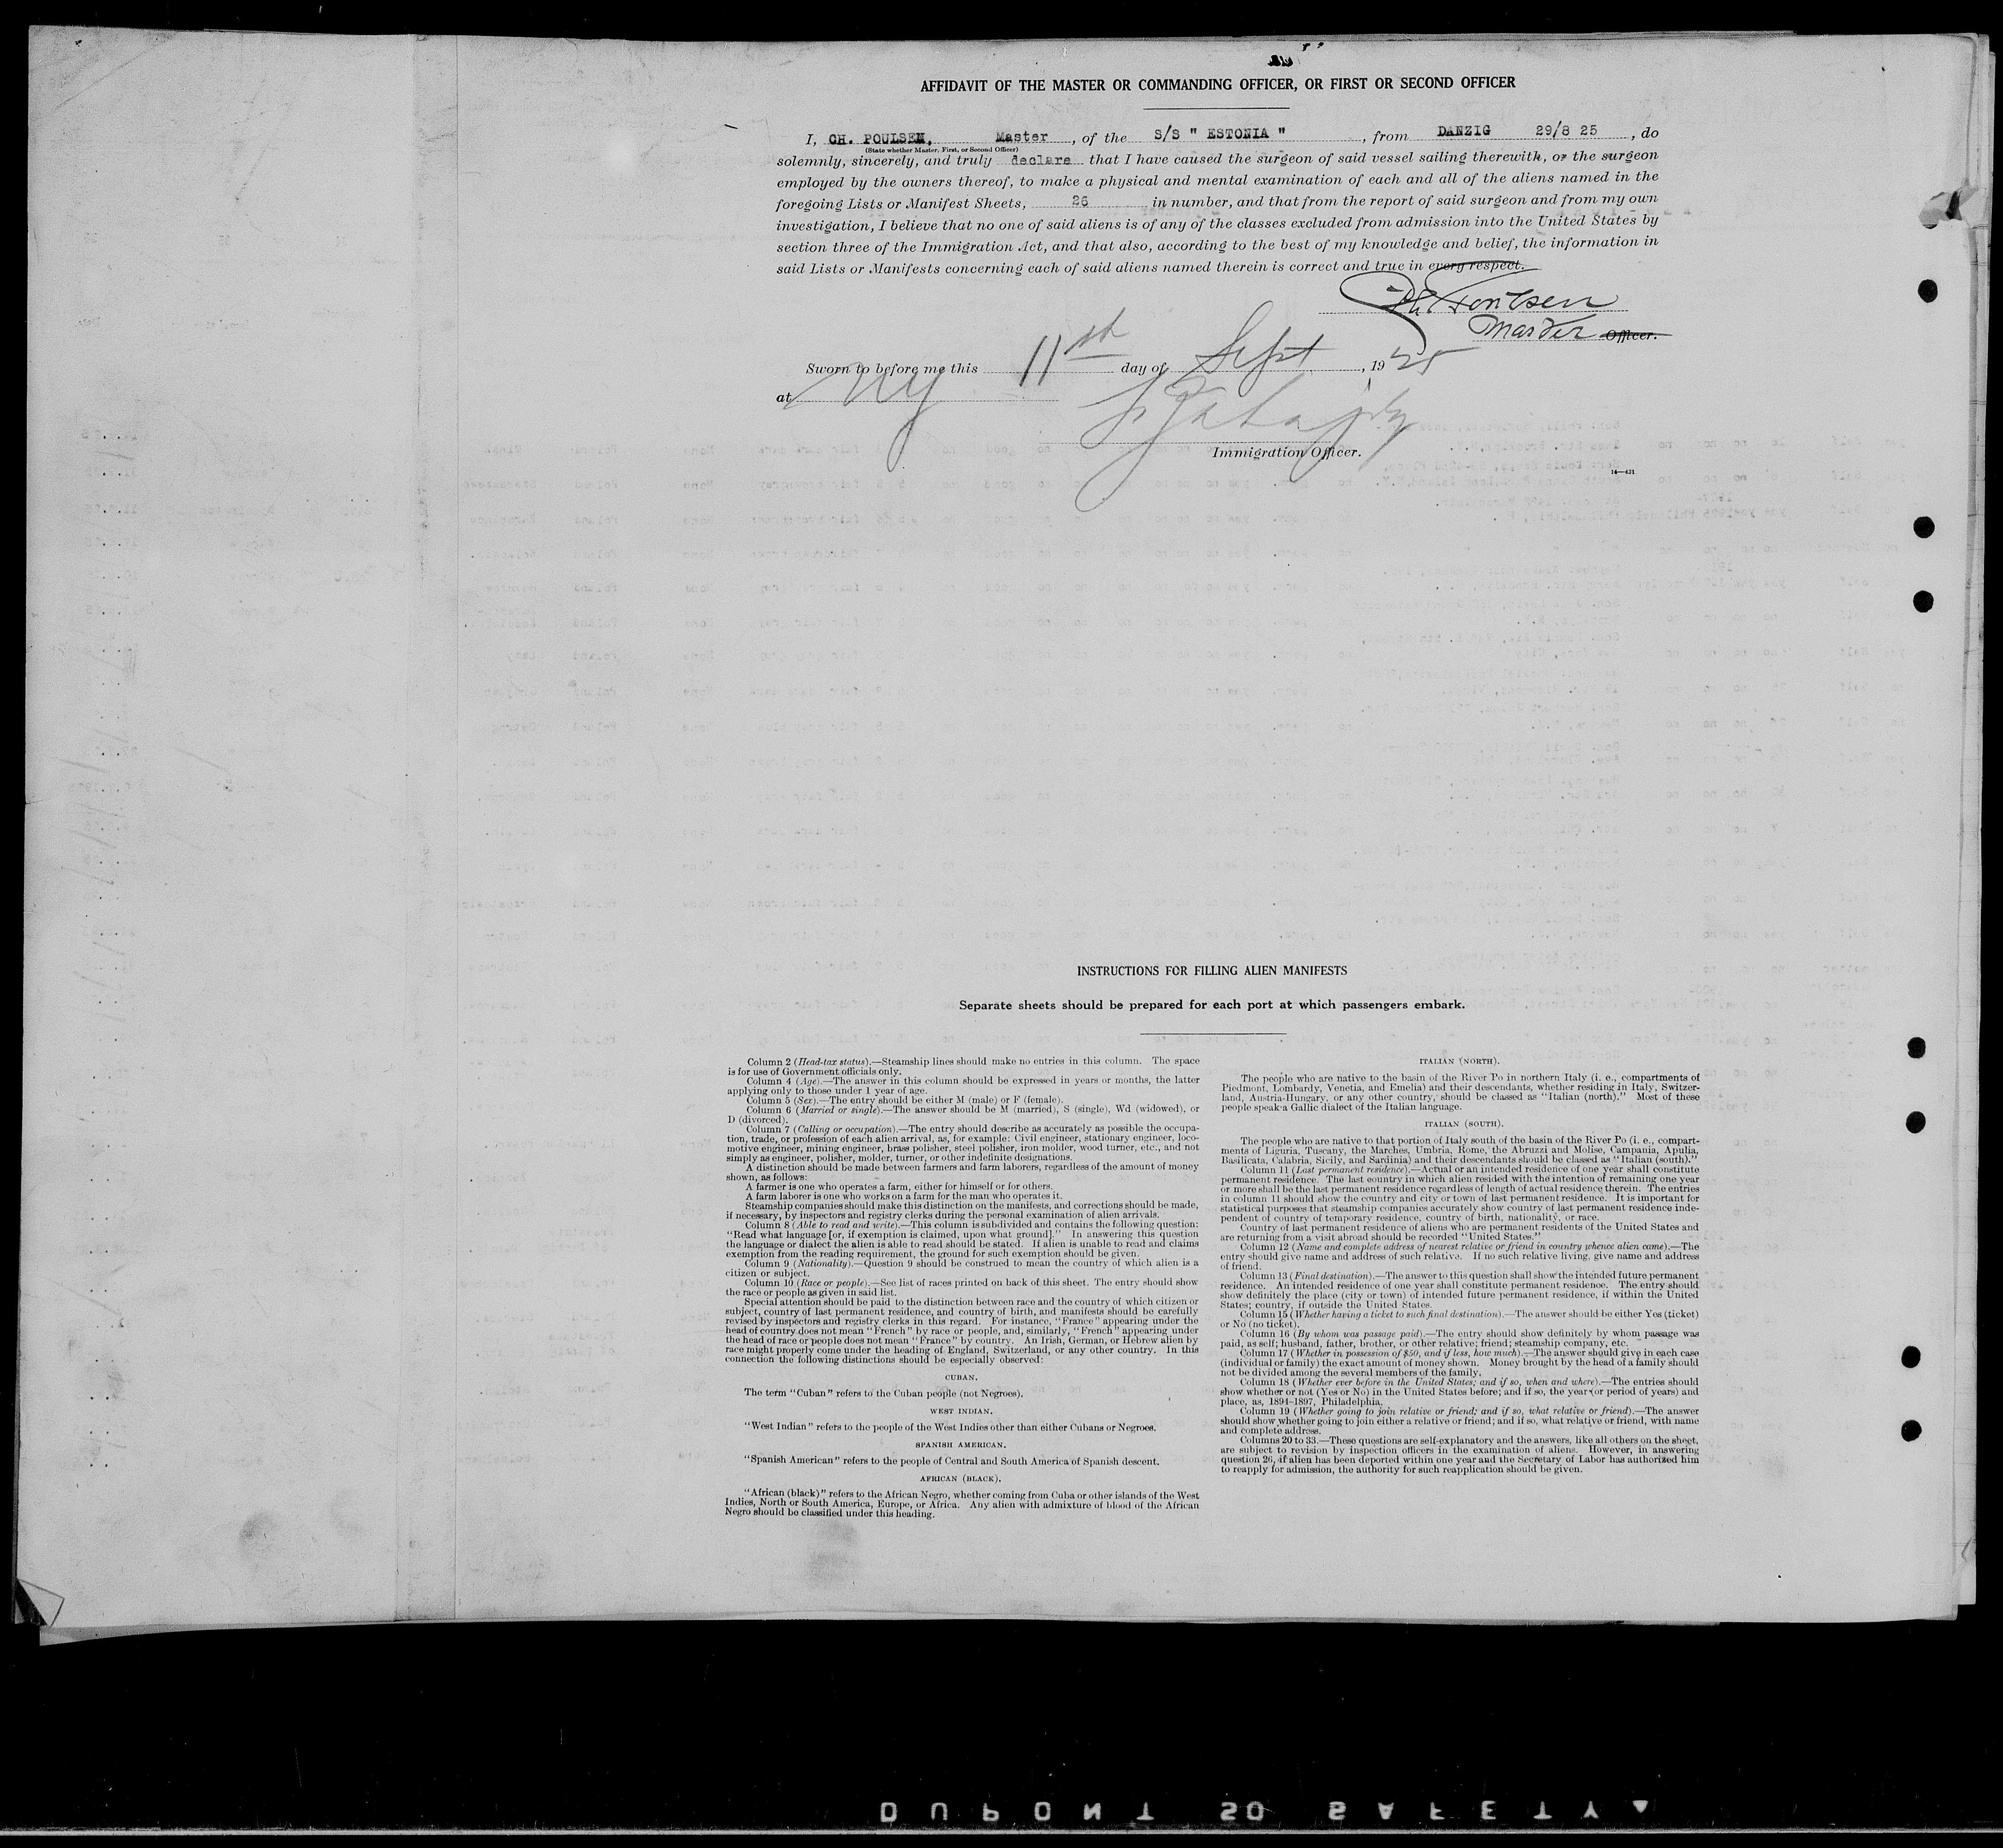 AFFIDAVIT OF THE MASTER OR COMMANDING OFFICER, OR FIRST OR SECOND OFFICER
I, CH. POULSEN, Master, of the S/S " ESTONIA ", from DANZIG 29/8 25, do
(State whether Master, First, or Second Officer)
solemnly, sincerely, and truly declare that I have caused the surgeon of said vessel sailing therewith, or the surgeon
employed by the owners thereof, to make a physical and mental examination of each and all of the aliens named in the
foregoing Lists or Manifest Sheets, 26 in number, and that from the report of said surgeon and from my own
investigation, I believe that no one of said aliens is of any of the classes excluded from admission into the United States by
section three of the Immigration Act, and that also, according to the best of my knowledge and belief, the information in
said Lists or Manifests concerning each of said aliens named therein is correct and true in every respect.
Ch. Poulsen
Master Officer.
Sworn to before me this 11st day of Sept, 1925
at NY
Immigration Officer.
14—431
INSTRUCTIONS FOR FILLING ALIEN MANIFESTS
Separate sheets should be prepared for each port at which passengers embark.
Column 2 (Head-tax status).—Steamship lines should make no entries in this column. The space
is for use of Government officials only.
Column 4 (Age).—The answer in this column should be expressed in years or months, the latter
applying only to those under 1 year of age.
Column 5 (Sex).—The entry should be either M (male) or F (female).
Column 6 (Married or single).—The answer should be M (married), S (single), Wd (widowed), or
D (divorced).
Column 7 (Calling or occupation).—The entry should describe as accurately as possible the occupa-
tion, trade, or profession of each alien arrival, as, for example: Civil engineer, stationary engineer, loco-
motive engineer, mining engineer, brass polisher, steel polisher, iron molder, wood turner, etc., and not
simply as engineer, polisher, molder, turner, or other indefinite designations.
A distinction should be made between farmers and farm laborers, regardless of the amount of money
shown, as follows:
A farmer is one who operates a farm, either for himself or for others.
A farm laborer is one who works on a farm for the man who operates it.
Steamship companies should make this distinction on the manifests, and corrections should be made,
if necessary, by inspectors and registry clerks during the personal examination of alien arrivals.
Column 8 (Able to read and write).—This column is subdivided and contains the following question:
"Read what language [or, if exemption is claimed, upon what ground]." In answering this question
the language or dialect the alien is able to read should be stated. If alien is unable to read and claims
exemption from the reading requirement, the ground for such exemption should be given.
Column 9 (Nationality).—Question 9 should be construed to mean the country of which alien is a
citizen or subject.
Column 10 (Race or people).—See list of races printed on back of this sheet. The entry should show
the race or people as given in said list.
Special attention should be paid to the distinction between race and the country of which citizen or
subject, country of last permanent residence, and country of birth, and manifests should be carefully
revised by inspectors and registry clerks in this regard. For instance, "France" appearing under the
head of country does not mean "French" by race or people, and, similarly, "French" appearing under
the head of race or people does not mean "France" by country. An Irish, German, or Hebrew alien by
race might properly come under the heading of England, Switzerland, or any other country. In this
connection the following distinctions should be especially observed:
CUBAN.
The term "Cuban" refers to the Cuban people (not Negroes).
WEST INDIAN.
"West Indian" refers to the people of the West Indies other than either Cubans or Negroes.
SPANISH AMERICAN.
"Spanish American" refers to the people of Central and South America of Spanish descent.
AFRICAN (BLACK).
"African (black)" refers to the African Negro, whether coming from Cuba or other islands of the West
Indies, North or South America, Europe, or Africa. Any alien with admixture of blood of the African
Negro should be classified under this heading.
ITALIAN (NORTH).
The people who are native to the basin of the River Po in northern Italy (i. e., compartments of
Piedmont, Lombardy, Venetia, and Emelia) and their descendants, whether residing in Italy, Switzer-
land, Austria-Hungary, or any other country, should be classed as "Italian (north)." Most of these
people speak a Gallic dialect of the Italian language.
ITALIAN (SOUTH).
The people who are native to that portion of Italy south of the basin of the River Po (i. e., compart-
ments of Liguria, Tuscany, the Marches, Umbria, Rome, the Abruzzi and Molise, Campania, Apulia,
Basilicata, Calabria, Sicily, and Sardinia) and their descendants should be classed as "Italian (south)."
Column 11 (Last permanent residence).—Actual or an intended residence of one year shall constitute
permanent residence. The last country in which alien resided with the intention of remaining one year
or more shall be the last permanent residence regardless of length of actual residence therein. The entries
in column 11 should show the country and city or town of last permanent residence. It is important for
statistical purposes that steamship companies accurately show country of last permanent residence inde-
pendent of country of temporary residence, country of birth, nationality, or race.
Country of last permanent residence of aliens who are permanent residents of the United States and
are returning from a visit abroad should be recorded "United States."
Column 12 (Name and complete address of nearest relative or friend in country whence alien came).—The
entry should give name and address of such relative. If no such relative living, give name and address
of friend.
Column 13 (Final destination).—The answer to this question shall show the intended future permanent
residence. An intended residence of one year shall constitute permanent residence. The entry should
show definitely the place (city or town) of intended future permanent residence, if within the United
States; country, if outside the United States.
Column 15 (Whether having a ticket to such final destination).—The answer should be either Yes (ticket)
or No (no ticket).
Column 16 (By whom was passage paid).—The entry should show definitely by whom passage was
paid, as self; husband, father, brother, or other relative; friend; steamship company, etc.
Column 17 (Whether in possession of $50, and if less, how much).—The answer should give in each case
(individual or family) the exact amount of money shown. Money brought by the head of a family should
not be divided among the several members of the family.
Column 18 (Whether ever before in the United States; and if so, when and where).—The entries should
show whether or not (Yes or No) in the United States before; and if so, the year (or period of years) and
place, as, 1894-1897, Philadelphia.
Column 19 (Whether going to join relative or friend; and if so, what relative or friend).—The answer
should show whether going to join either a relative or friend; and if so, what relative or friend, with name
and complete address.
Columns 20 to 33.—These questions are self-explanatory and the answers, like all others on the sheet,
are subject to revision by inspection officers in the examination of aliens. However, in answering
question 26, if alien has been deported within one year and the Secretary of Labor has authorized him
to reapply for admission, the authority for such reapplication should be given.
DUPONT SO SAFETY